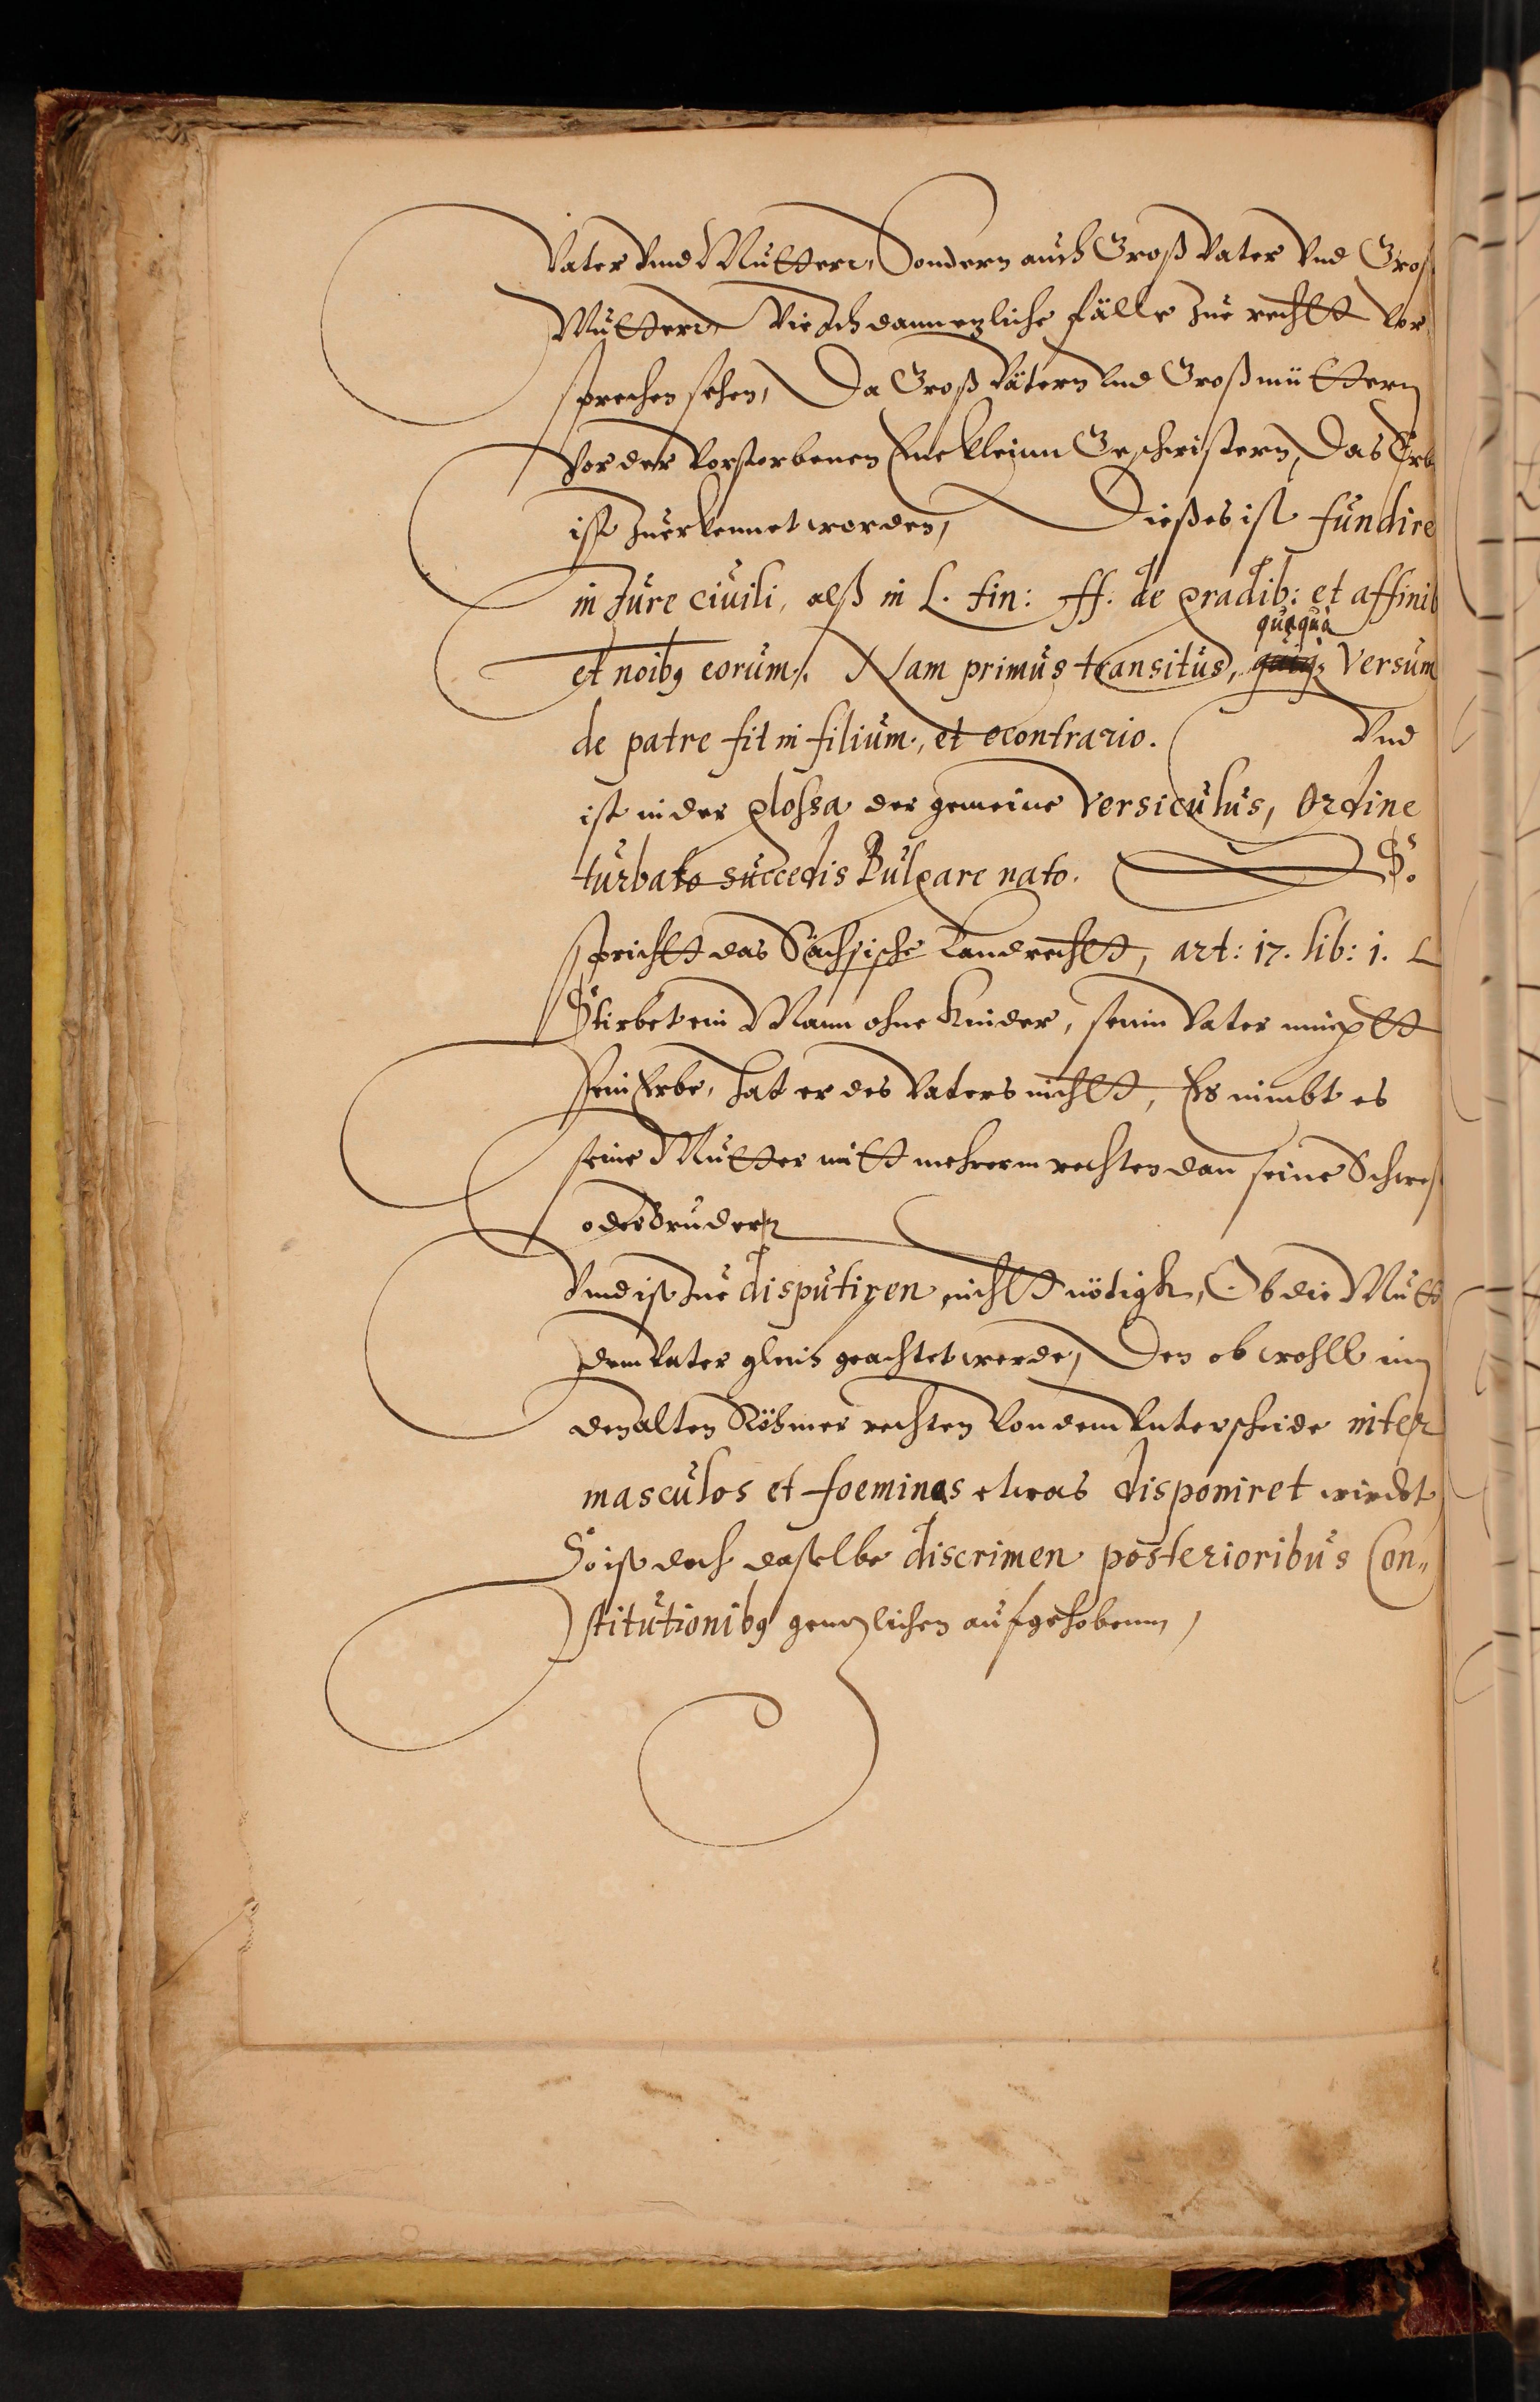 Vater Vnnd Mutterr, Sondern auch Groß Vater Vnd Gros
Mutterr, Wie sich dann etzliche fälle zue rechtt vor
sprechen sehen, Da Groß Vätern vnd Großmüttern
Vor der Vorstorbenen Enckleinn Geschwistern, Das Erb
ist zuerkennet worden, Dießes ist fundire
in Jure ciuili, alß in L. fin: ff. de gradib: et affinib
et noib9 eorum/. Nam primus transitus, quaqua Versum
de patre fit in filium, et econtrario. Vnd
ist in der glossa der gemeine Versiculus, Ordine
turbato succedis Vulgare nato. So
sprichtt das Sächsische Landrechtt, art: 17. lib: 1.
Stirbet ein Mann ohne Kinder, seinn Vater nimptt
sein Erbe, hat er des Vaters nichtt, Es nimbt es
seine Mutter mitt mehrerm rechten dan seine Schwes
oder Bruder
Vnnd ist zue disputiren nichtt nötigk, Ob die Mutt
dem Vater gleich geachtet werde, Den ob wohll inn
den alten Röhmer rechten Von dem Vnterscheide inter
masculos et foeminas etwas disponiret wirdet
So ist doch dasselbe discrimen posterioribus Con„
stitutionib9 gentzlichen aufgehobenn,